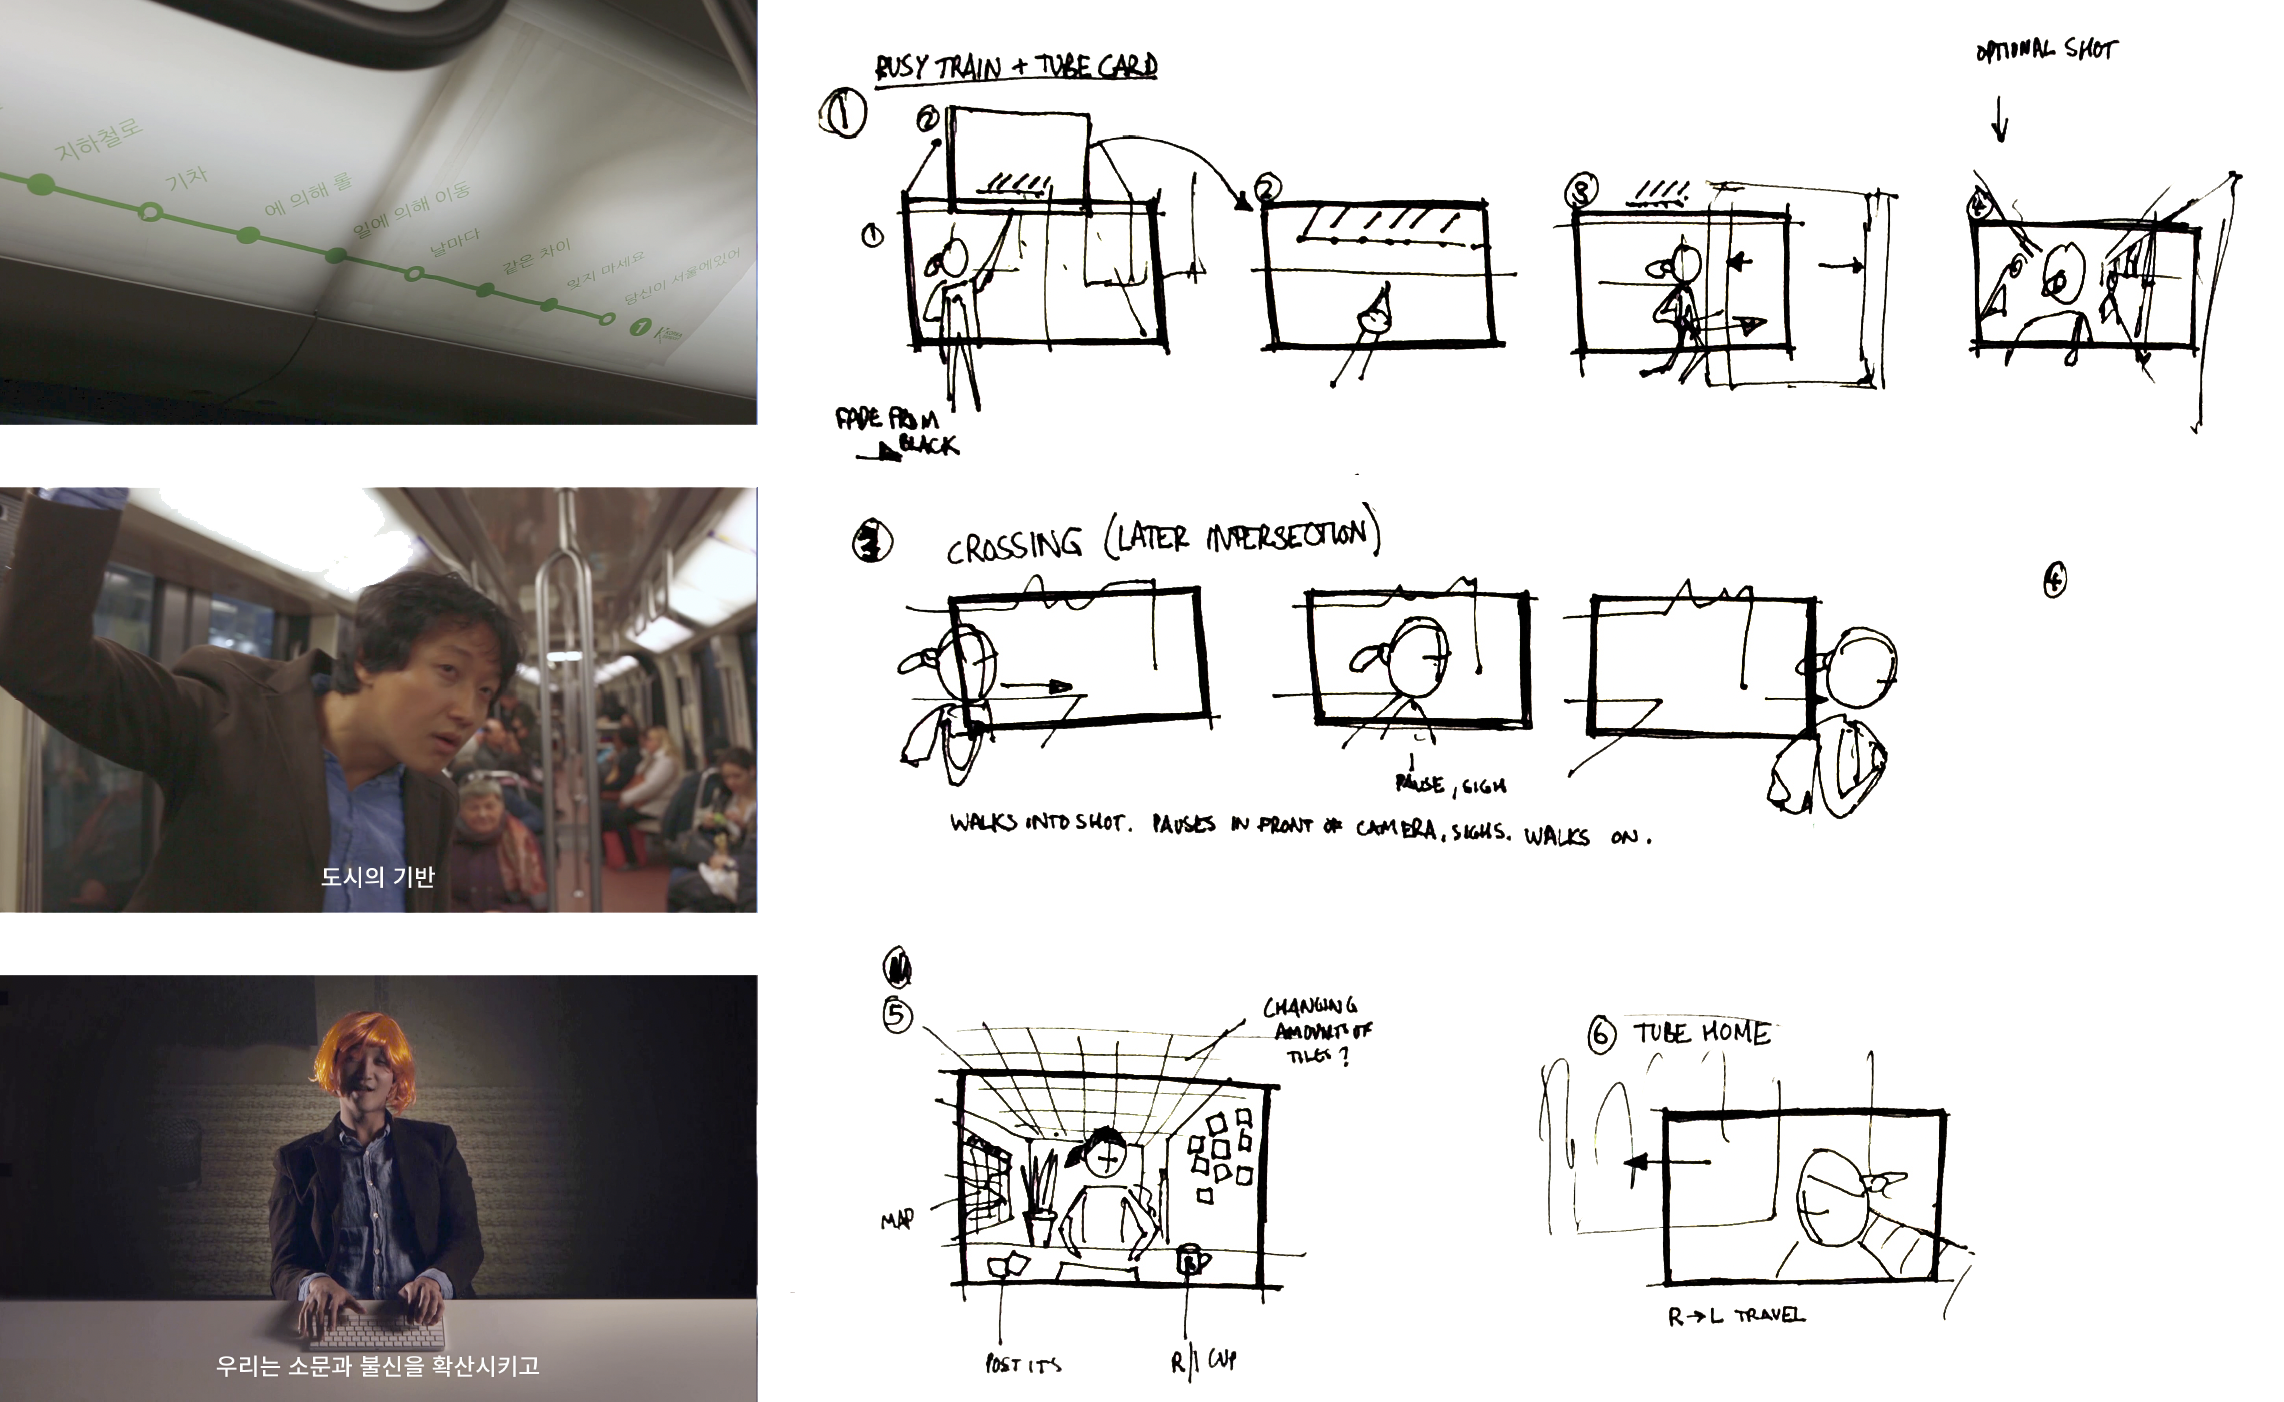 지하철로
기차
에 의해 롤
일에 의해 이동
날마다
같은 차이
잊지 마세요
당신이 서울에있어
1
도시의 기반
우리는 소문과 불신을 확산시키고
BUSY TRAIN + TUBE CARD
1
2
1
2
3
4
OPTIONAL SHOT
FADE FROM
BLACK
CROSSING (LATER INTERSECTION)
4
PAUSE, SIGH
WALKS INTO SHOT. PAUSES IN FRONT OF CAMERA, SIGHS. WALKS ON.
5
CHANGING
AMOUNTS OF
TILES?
MAP
POST ITS
R/I CUP
6 TUBE HOME
R→L TRAVEL